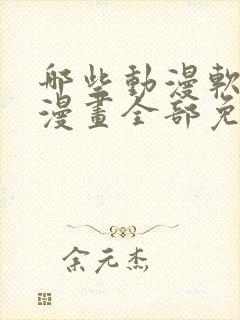 哪些動漫軟
漫畫全部免
余元杰